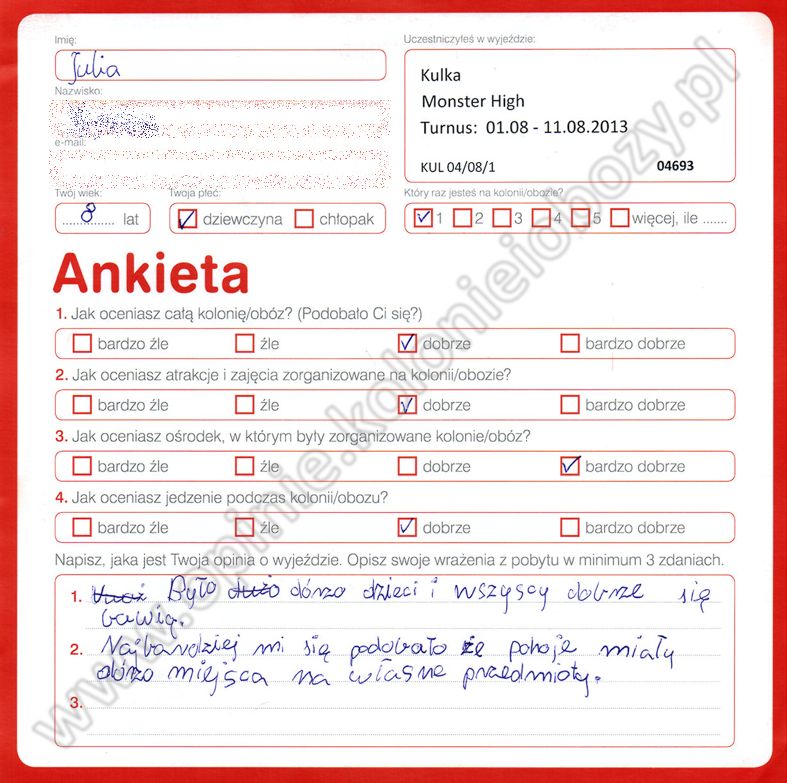 Imię:
Julia
Nazwisko:
e-mail:
Uczestniczyłeś w wyjeździe:
Kulka
Monster High
Turnus: 01.08 - 11.08.2013
KUL 04/08/1 04693
Twój wiek:
8 lat
Twoja płeć:
dziewczyna chłopak
Który raz jesteś na kolonii/obozie?
1 2 3 4 5 więcej, ile .......
Ankieta
1. Jak oceniasz całą kolonię/obóz? (Podobało Ci się?)
bardzo źle źle dobrze bardzo dobrze
2. Jak oceniasz atrakcje i zajęcia zorganizowane na kolonii/obozie?
bardzo źle źle dobrze bardzo dobrze
3. Jak oceniasz ośrodek, w którym były zorganizowane kolonie/obóz?
bardzo źle źle dobrze bardzo dobrze
4. Jak oceniasz jedzenie podczas kolonii/obozu?
bardzo źle źle dobrze bardzo dobrze
Napisz, jaka jest Twoja opinia o wyjeździe. Opisz swoje wrażenia z pobytu w minimum 3 zdaniach.
1. Było dużo dórzo dzieci i wszyscy dobrze się
bawią.
2. Najbardziej mi się podobało że pokoje miały
dórzo miejsca na własne przedmioty.
3.
www.opinie.kolonieiobozy.pl